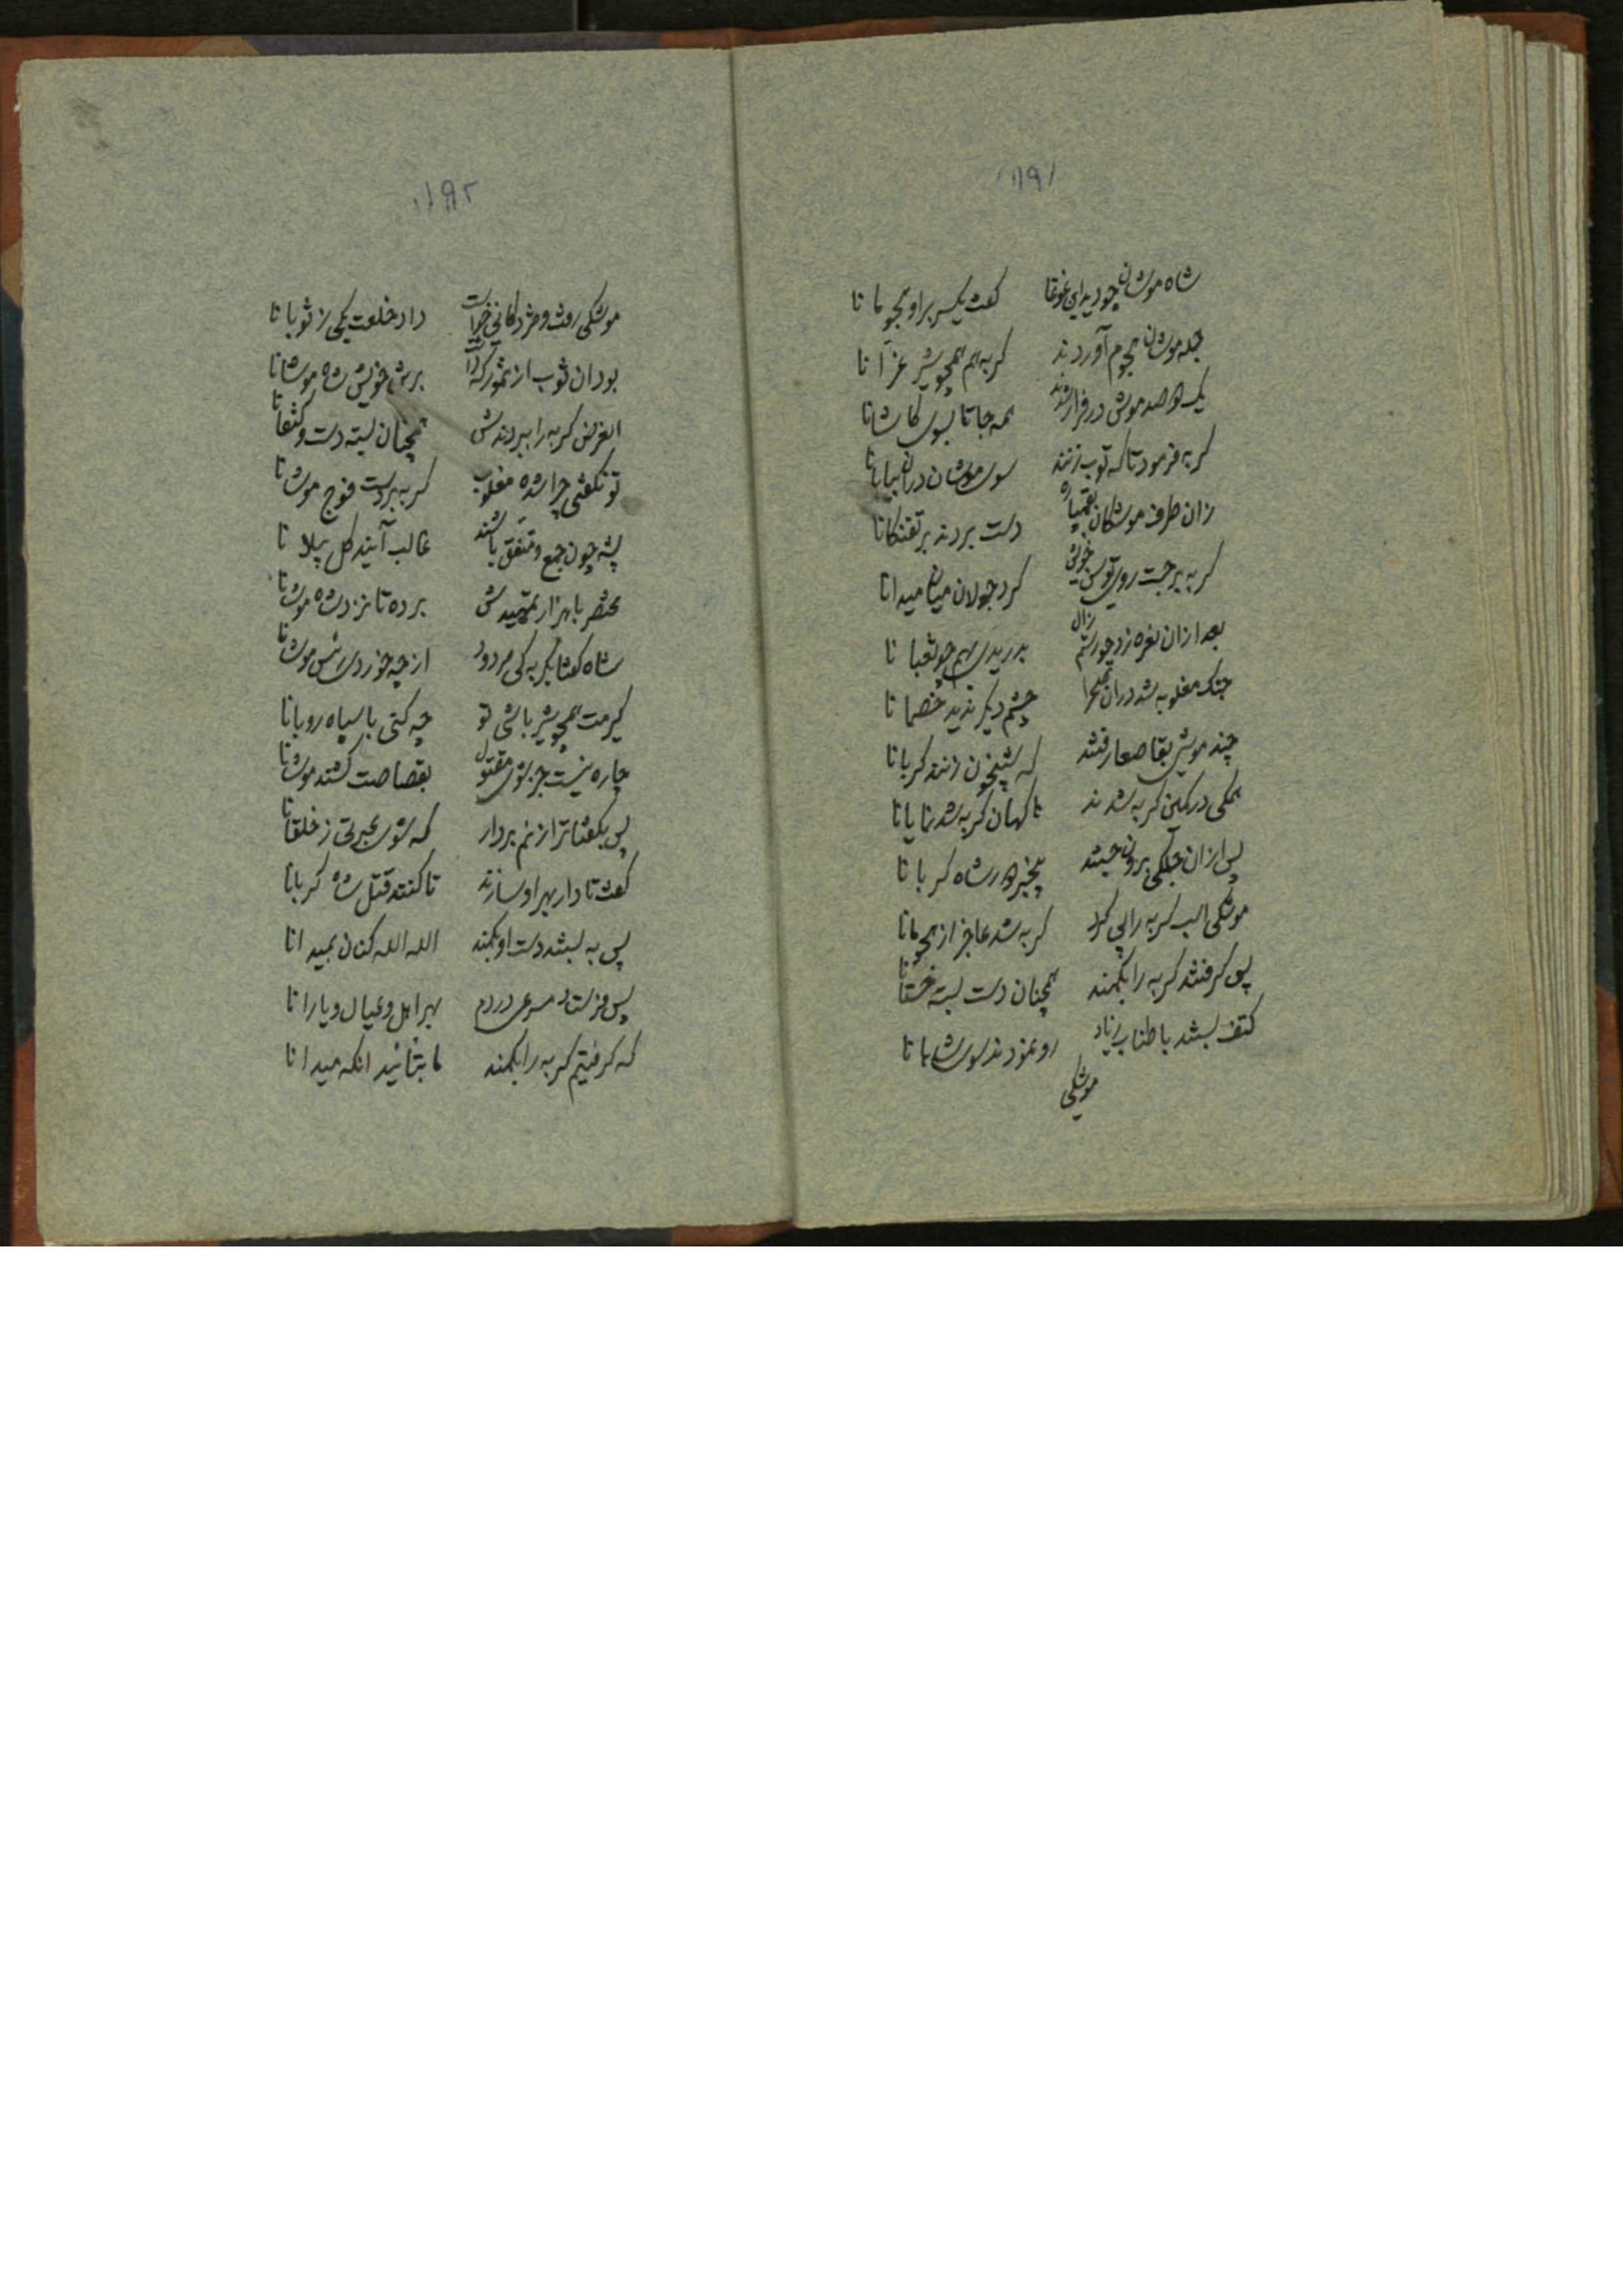 ۱۹۱
شاه موشان چو دید این غوغا کفت یکسر براو هجوما نا
جمله موشان هجوم آوردند کربه هم همچو شیر غرا نا
یک دو صد موش در فرار شدند همه جا تا بسوی کاشانا
کربه فرمود تا که توب زنند سوی موشان دران بیابانا
زان طرف موشکان دست بردند بر تفنکانا
کربه برجست روی توسن خویش کرد جولان میان میدانا
بعد ازان نعره زد چو رستم زال بدریدی بهم چو ثعبا نا
جنک مغلوبه شد دران صحرا چشم دیکر ندید خصما نا
چند موشی بقا صعا رفتند که شبخون زنند کربانا
همکی در کمین کربه شدند ناکهان کربه شد نمایانا
پس ازان جملکی برون جستند بیخبر از شاه کربا نا
موشکی اسب کربه را پی کرد کربه شد عاجز از هجومانا
پس کرفتند کربه را بکمند همچنان دست بسته خستانا
کتف بستند با طناب زیاد رو نمودند سوی شاهانا
موشکی
۱۹۲
موشکی رفت و مژدکانی خواست داد خلعت یکی ز ثوبا نا
بود ان ثوب از برش خویش شاه موشانا
الغرض کربه را ببردندش همچنان بسته دست و کتفانا
تو نکفتی چرا شده مغلوب کربه بردست فوج موشانا
پشه چون جمع و متفق باشند غالب آیند کل پیلا نا
مختصر با هزار تمهیدش برده تا نزد شاه موشانا
شاه کفتا بکربه کی مردود از چه خوردی رئس موشانا
کیرمت همچو شیر باشی تو چه کنی با سپاه روبانا
چاره نیست جز شوی مقتول بقصاصت کشند موشانا
پس بکفتا ترا زنم بردار که شوی عبرتی ز خلقانا
کفت تا دار بهر او سازند تا کنند قتل شاه کربانا
پس به بستند دست او بکمند الله الله کنان بمیدانا
پس فرستاد مسرعی دردم بهر اهل و عیال و یارانا
که کرفتیم کربه را بکمند تا بتائید انکه میدانا